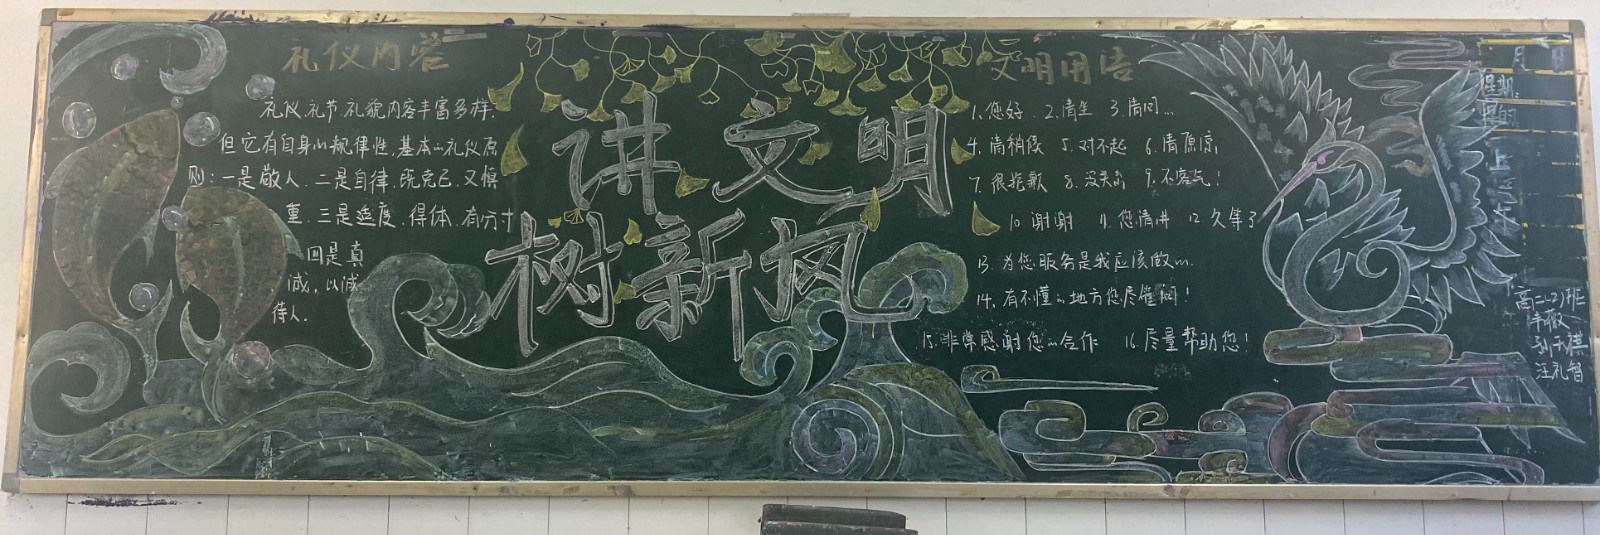 礼仪内容
礼仪、礼节、礼貌内容丰富多样,
但它有自身的规律性,基本的礼仪原
则:一是敬人.二是自律,既克己,又慎
重.三是适度,得体,有分寸
四是真
诚,以诚
待人.
讲文明
树新风
文明用语
1.您好.2.请坐 3.请问...
4.请稍候 5.对不起 6.请原谅
7.很抱歉 8.没关系 9.不客气!
10.谢谢 11.您请讲 12.久等了
13.为您服务是我应该做的.
14.有不懂的地方您尽管问!
15.非常感谢您的合作 16.尽量帮助您!
月 日
星期
高二(2)班
汪礼智